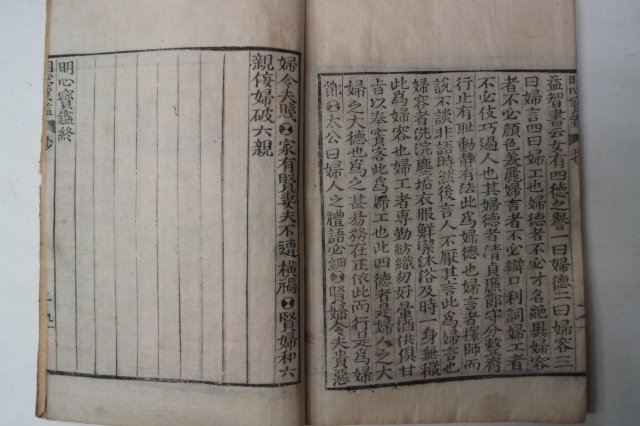 益智書云女有四德之譽一曰婦德二曰婦容三
曰婦言四曰婦工也婦德者不必才名絶異婦容
者不必顔色美麗婦言者不必辯口利詞婦工者
不必伎巧過人也其婦德者淸貞廉節守分整齊
行止有耻動静有法此爲婦德也婦言者擇師而
說不談非語時然後言人不厭其言此爲婦言也
婦容者洗浣塵垢衣服鮮潔沐浴及時一身無穢
此爲婦容也婦工者專勤紡織勿好暈酒供俱甘
旨以奉賓客此爲婦工也此四德者是婦人之大
婦之大德也爲之甚易務在正依此而行是爲婦
節 太公曰婦人之禮語必細 賢婦令夫貴惡
婦令夫賤 家有賢妻夫不遭橫禍 賢婦和六
親侫婦破六親
明心寶鑑終